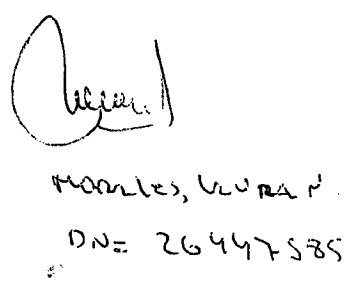 MORALES, LAURA M.
DNI 26447585